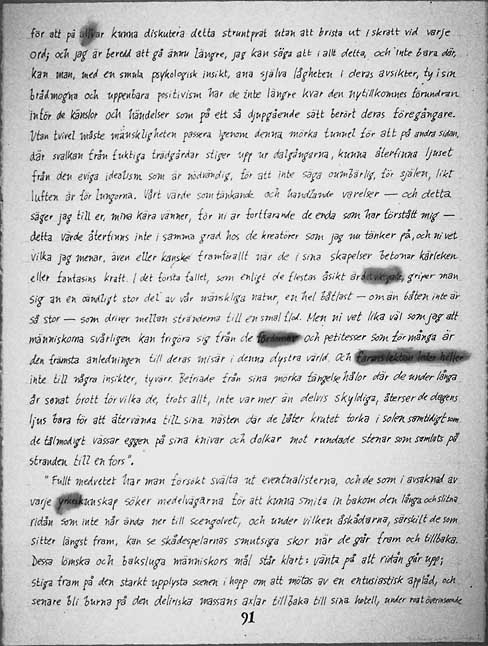 för att på allvar kunna diskutera detta struntprat utan att brista ut i skratt vid varje
ord; och jag är beredd att gå ännu längre, jag kan säga att i allt detta, och inte bara där,
kan man, med en smula psykologisk insikt, ana själva lågheten i deras avsikter, ty i sin
brådmogna och uppenbara positivism har de inte längre kvar den nytillkomnes förundran
inför de känslor och händelser som på ett så djupgående sätt berört deras föregångare.
Utan tvivel måste mänskligheten passera igenom denna mörka tunnel för att på andra sidan,
där svalkan från fuktiga trädgårdar stiger upp ur dalgångarna, kunna återfinna ljuset
från den eviga idealism som är nödvändig, för att inte säga oumbärlig, för själen, likt
luften är för lungorna. Vårt värde som tänkande och handlande varelser — och detta
säger jag till er, mina kära vänner, för ni är fortfarande de enda som har förstått mig —
detta värde återfinns inte i samma grad hos de kreatörer som jag nu tänker på, och ni vet
vilka jag menar, även eller kanske framförallt när de i sina skapelser betonar kärleken
eller fantasins kraft. I det första fallet, som enligt de flestas åsikt är griper man
sig an en oändligt stor del av vår mänskliga natur, en hel båtlast — om än båten inte är
så stor — som driver mellan stränderna till en smal flod. Men ni vet lika väl som jag att
människorna svårligen kan frigöra sig från de fördomar och petitesser som för många är
den främsta anledningen till deras misär i denna dystra värld. Och leder heller
inte till några insikter, tyvärr. Befriade från sina mörka fängelsehålor där de under långa
år sonat brott för vilka de, trots allt, inte var mer än delvis skyldiga, återser de dagens
ljus bara för att återvända till sina nästen där de låter krutet torka i solen samtidigt som
de tålmodigt vässar eggen på sina knivar och dolkar mot rundade stenar som samlats på
stranden till en fors".
"Fullt medvetet har man försökt svälta ut eventualisterna, och de som i avsaknad av
varje yrkeskunskap söker medelvägarna för att kunna smita in bakom den långa och slitna
ridån som inte når ända ner till scengolvet, och under vilken åskådarna, särskilt de som
sitter längst fram, kan se skådespelarnas smutsiga skor när de går fram och tillbaka.
Dessa lömska och baksluga människors mål står klart: vänta på att ridån går upp;
stiga fram på den starkt upplysta scenen i hopp om att mötas av en entusiastisk applåd, och
senare bli burna på den deliriska massans axlar tillbaka till sina hotell, under
91